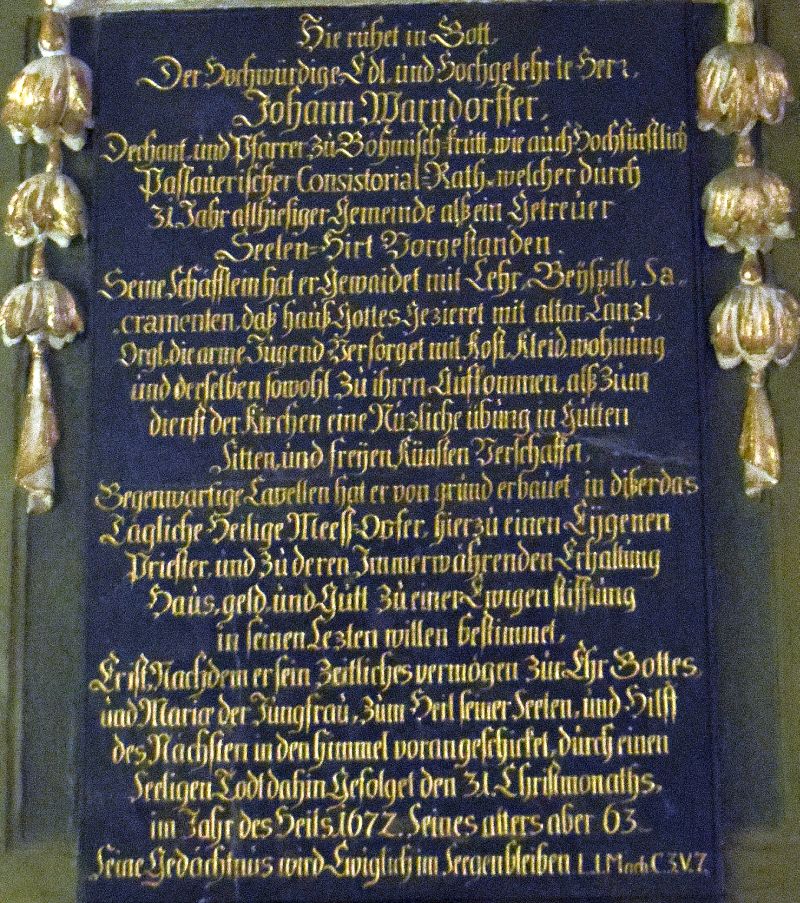 Hie rühet in Gott,
Der Hochwürdige, Edl, und Hochgelehrte Herr,
Johann Warndorffer,
Dechant, und Pfarrer zu Böhmisch-krutt, wie auch Hochfürstlich
Passauerischer Consistorial-Rath, welcher durch
31. Jahr allhiesiger Gemeinde alß ein Getreüer
Seelen-Hirt Vorgestanden.
Seine Schäfflein hat er Gewaidet mit Lehr, Beÿspill, Sa-
cramenten, daß hauß Gottes Gezieret mit altar, Canzl,
Orgl, die arme Jugend Versorget mit Kost, Kleid, wohnung
und derselben sowohl Zu ihren Aufkommen, alß Zum
dienst der Kirchen eine Nüzliche übung in Gütten
Sitten, und freÿen Künsten Verschaffet,
Gegenwärtige Capellen hat er von grund erbauet, in dißer das
Tägliche Heilige Meess-Opfer, hierzu einen Eÿgenen
Priester, und Zu deren Immerwährenden Erhaltung
Haus, geld, und Gütt Zu einer Ewigen stifftung
in seinen Lezten willen bestimmet,
Er ist, Nachdem er sein Zeitliches vermögen Zur Ehr Gottes,
und Maria der Jungfrau, Zum Heil seiner Seelen, und Hilff
des Nächsten in den himmel vorangeschicket, durch einen
Seeligen Todt dahin Gefolget den 31. Christmonaths,
im Jahr des Heils 1672. Seines alters aber 63
Seine Gedächtnus wird Ewiglich im Seegen bleiben